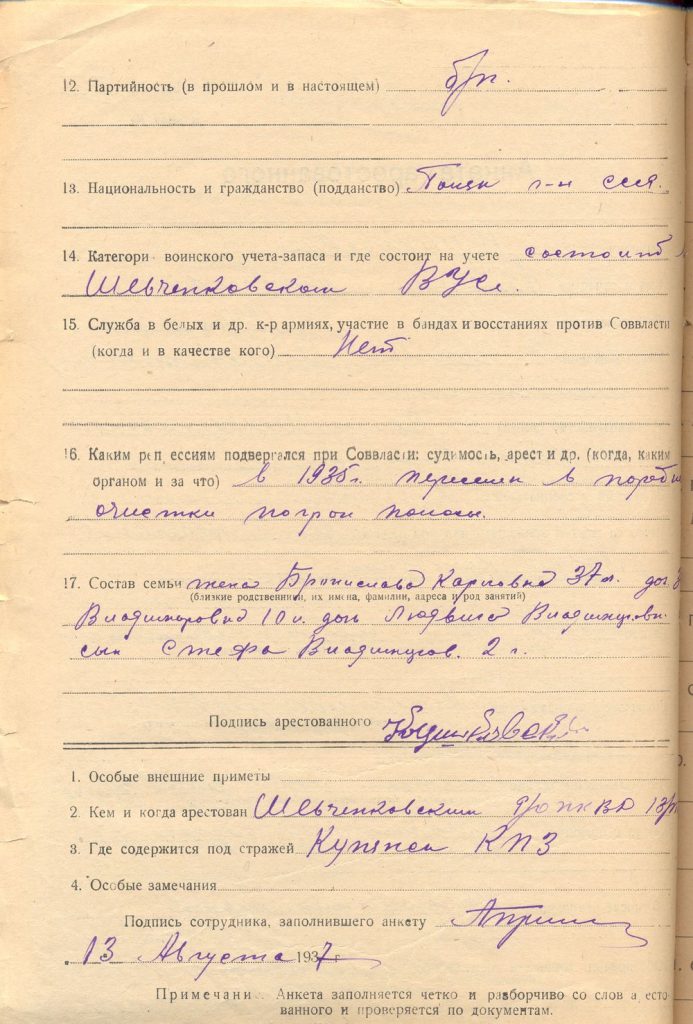 12. Партийность (в прошлом и в настоящем) б/п.
13. Национальность и гражданство (подданство) Поляк г-н ссср.
14. Категори воинского учета-запаса и где состоит на учете состоит в
Шевченковском ВУС.
15. Служба в белых и др. к-р армиях, участие в бандах и восстаниях против Соввласти
(когда и в качестве кого) Нет
16. Каким реп ессиям подвергался при Соввласти: судимость, арест и др. (когда, каким
органом и за что) в 1935 г. переселен в поряд
очистки погран полосы.
17. Состав семьи жена Бронислава Карповна 37 л. доч
(близкие родственники, их имена, фамилии, адреса и род занятий)
Владимировна 10 л. доч Людвига Владимировн
сын Стефа Владимиров. 2 г.
Подпись арестованного
1. Особые внешние приметы
2. Кем и когда арестован Шевченковским РО НКВД 13/
3. Где содержится под стражей Купянск КПЗ
4. Особые замечания
Подпись сотрудника, заполнившего анкету
13 Августа 1937 г
Примечани Анкета заполняется четко и разборчиво со слов а есто-
ванного и проверяется по документам.